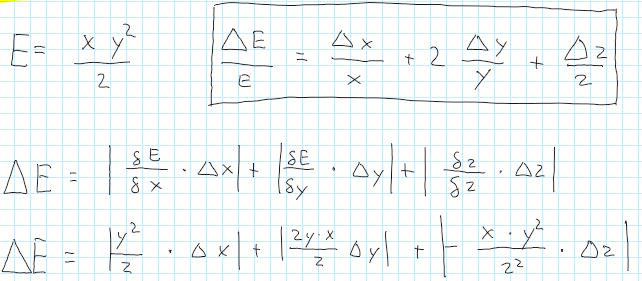 E = x y² / z    ΔE/E = Δx/x + 2 Δy/y + Δz/z
ΔE = |δE/δx · Δx| + |δE/δy · Δy| + |δz/δz · Δz|
ΔE = |y²/z · Δx| + |2y·x/z Δy| + |- x·y²/z² · Δz|